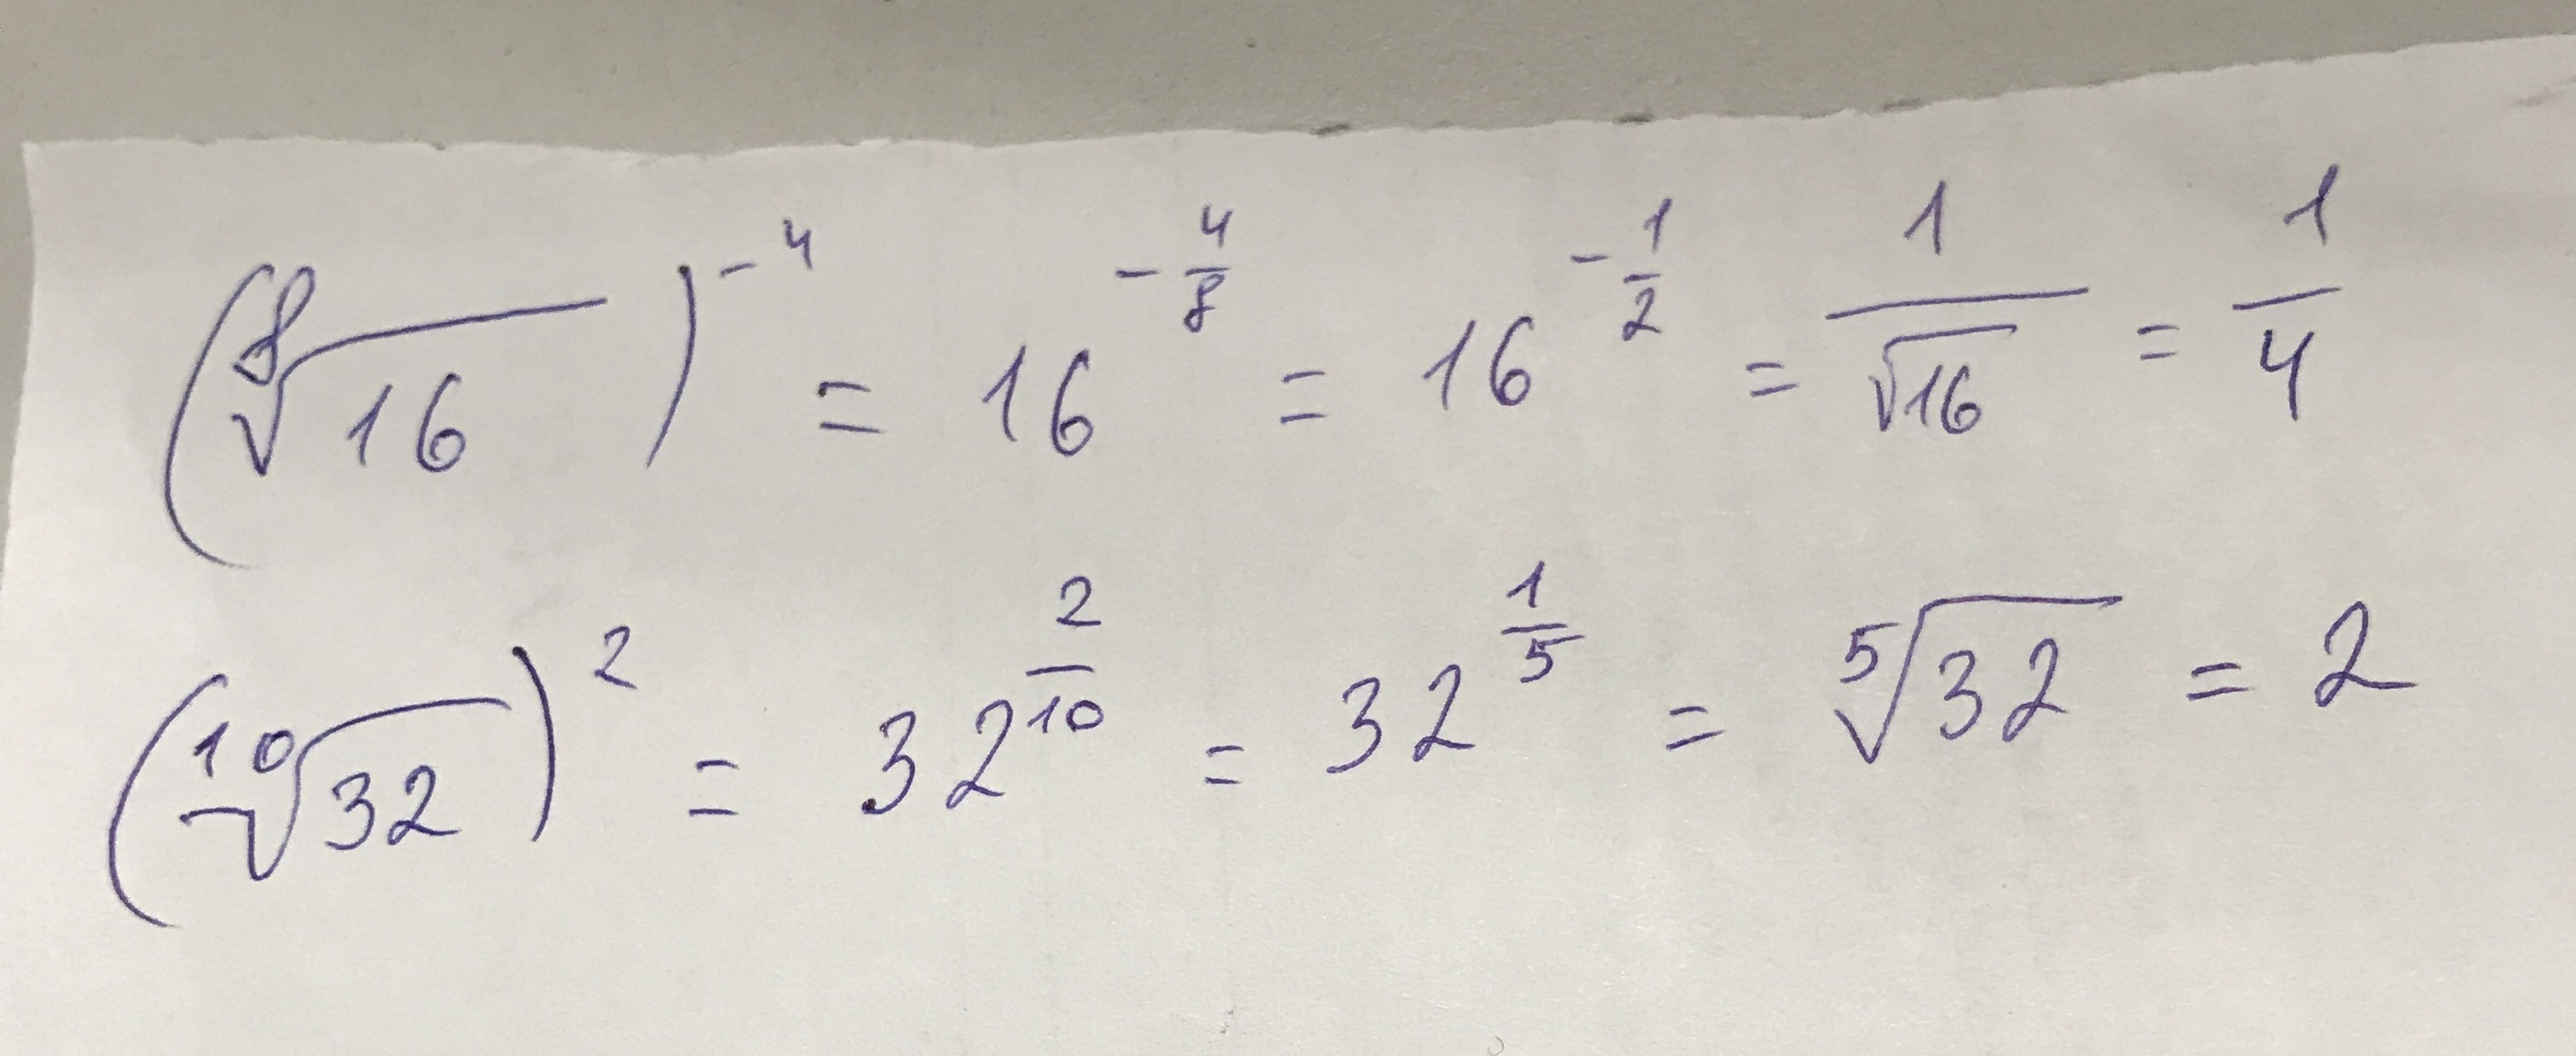 (⁸√16)⁻⁴ = 16^(-4/8) = 16^(-1/2) = 1/√16 = 1/4
(¹⁰√32)² = 32^(2/10) = 32^(1/5) = ⁵√32 = 2